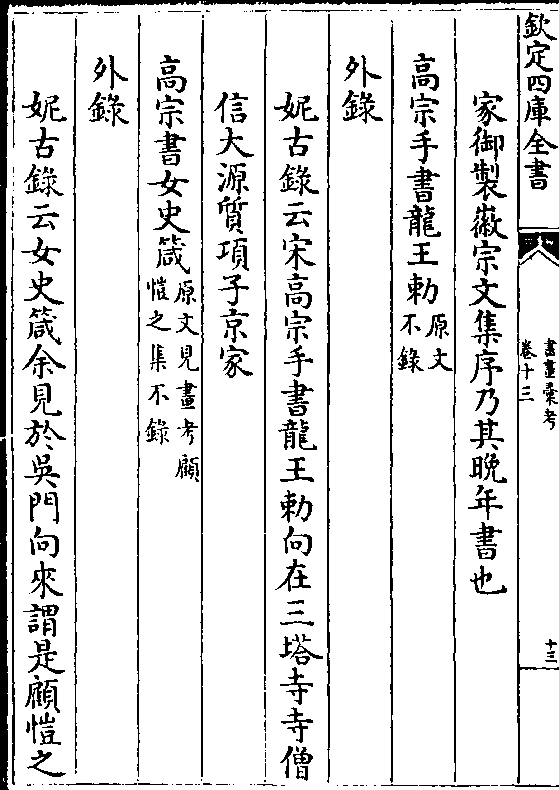 欽定四庫全書
書畫彙考
卷十三
十三
家御製徽宗文集序乃其晚年書也
高宗手書龍王勅原文不錄
外錄
妮古錄云宋高宗手書龍王勅向在三塔寺寺僧
信大源質項子京家
高宗書女史箴原文見畫考顧愷之集不錄
外錄
妮古錄云女史箴余見於吳門向來謂是顧愷之